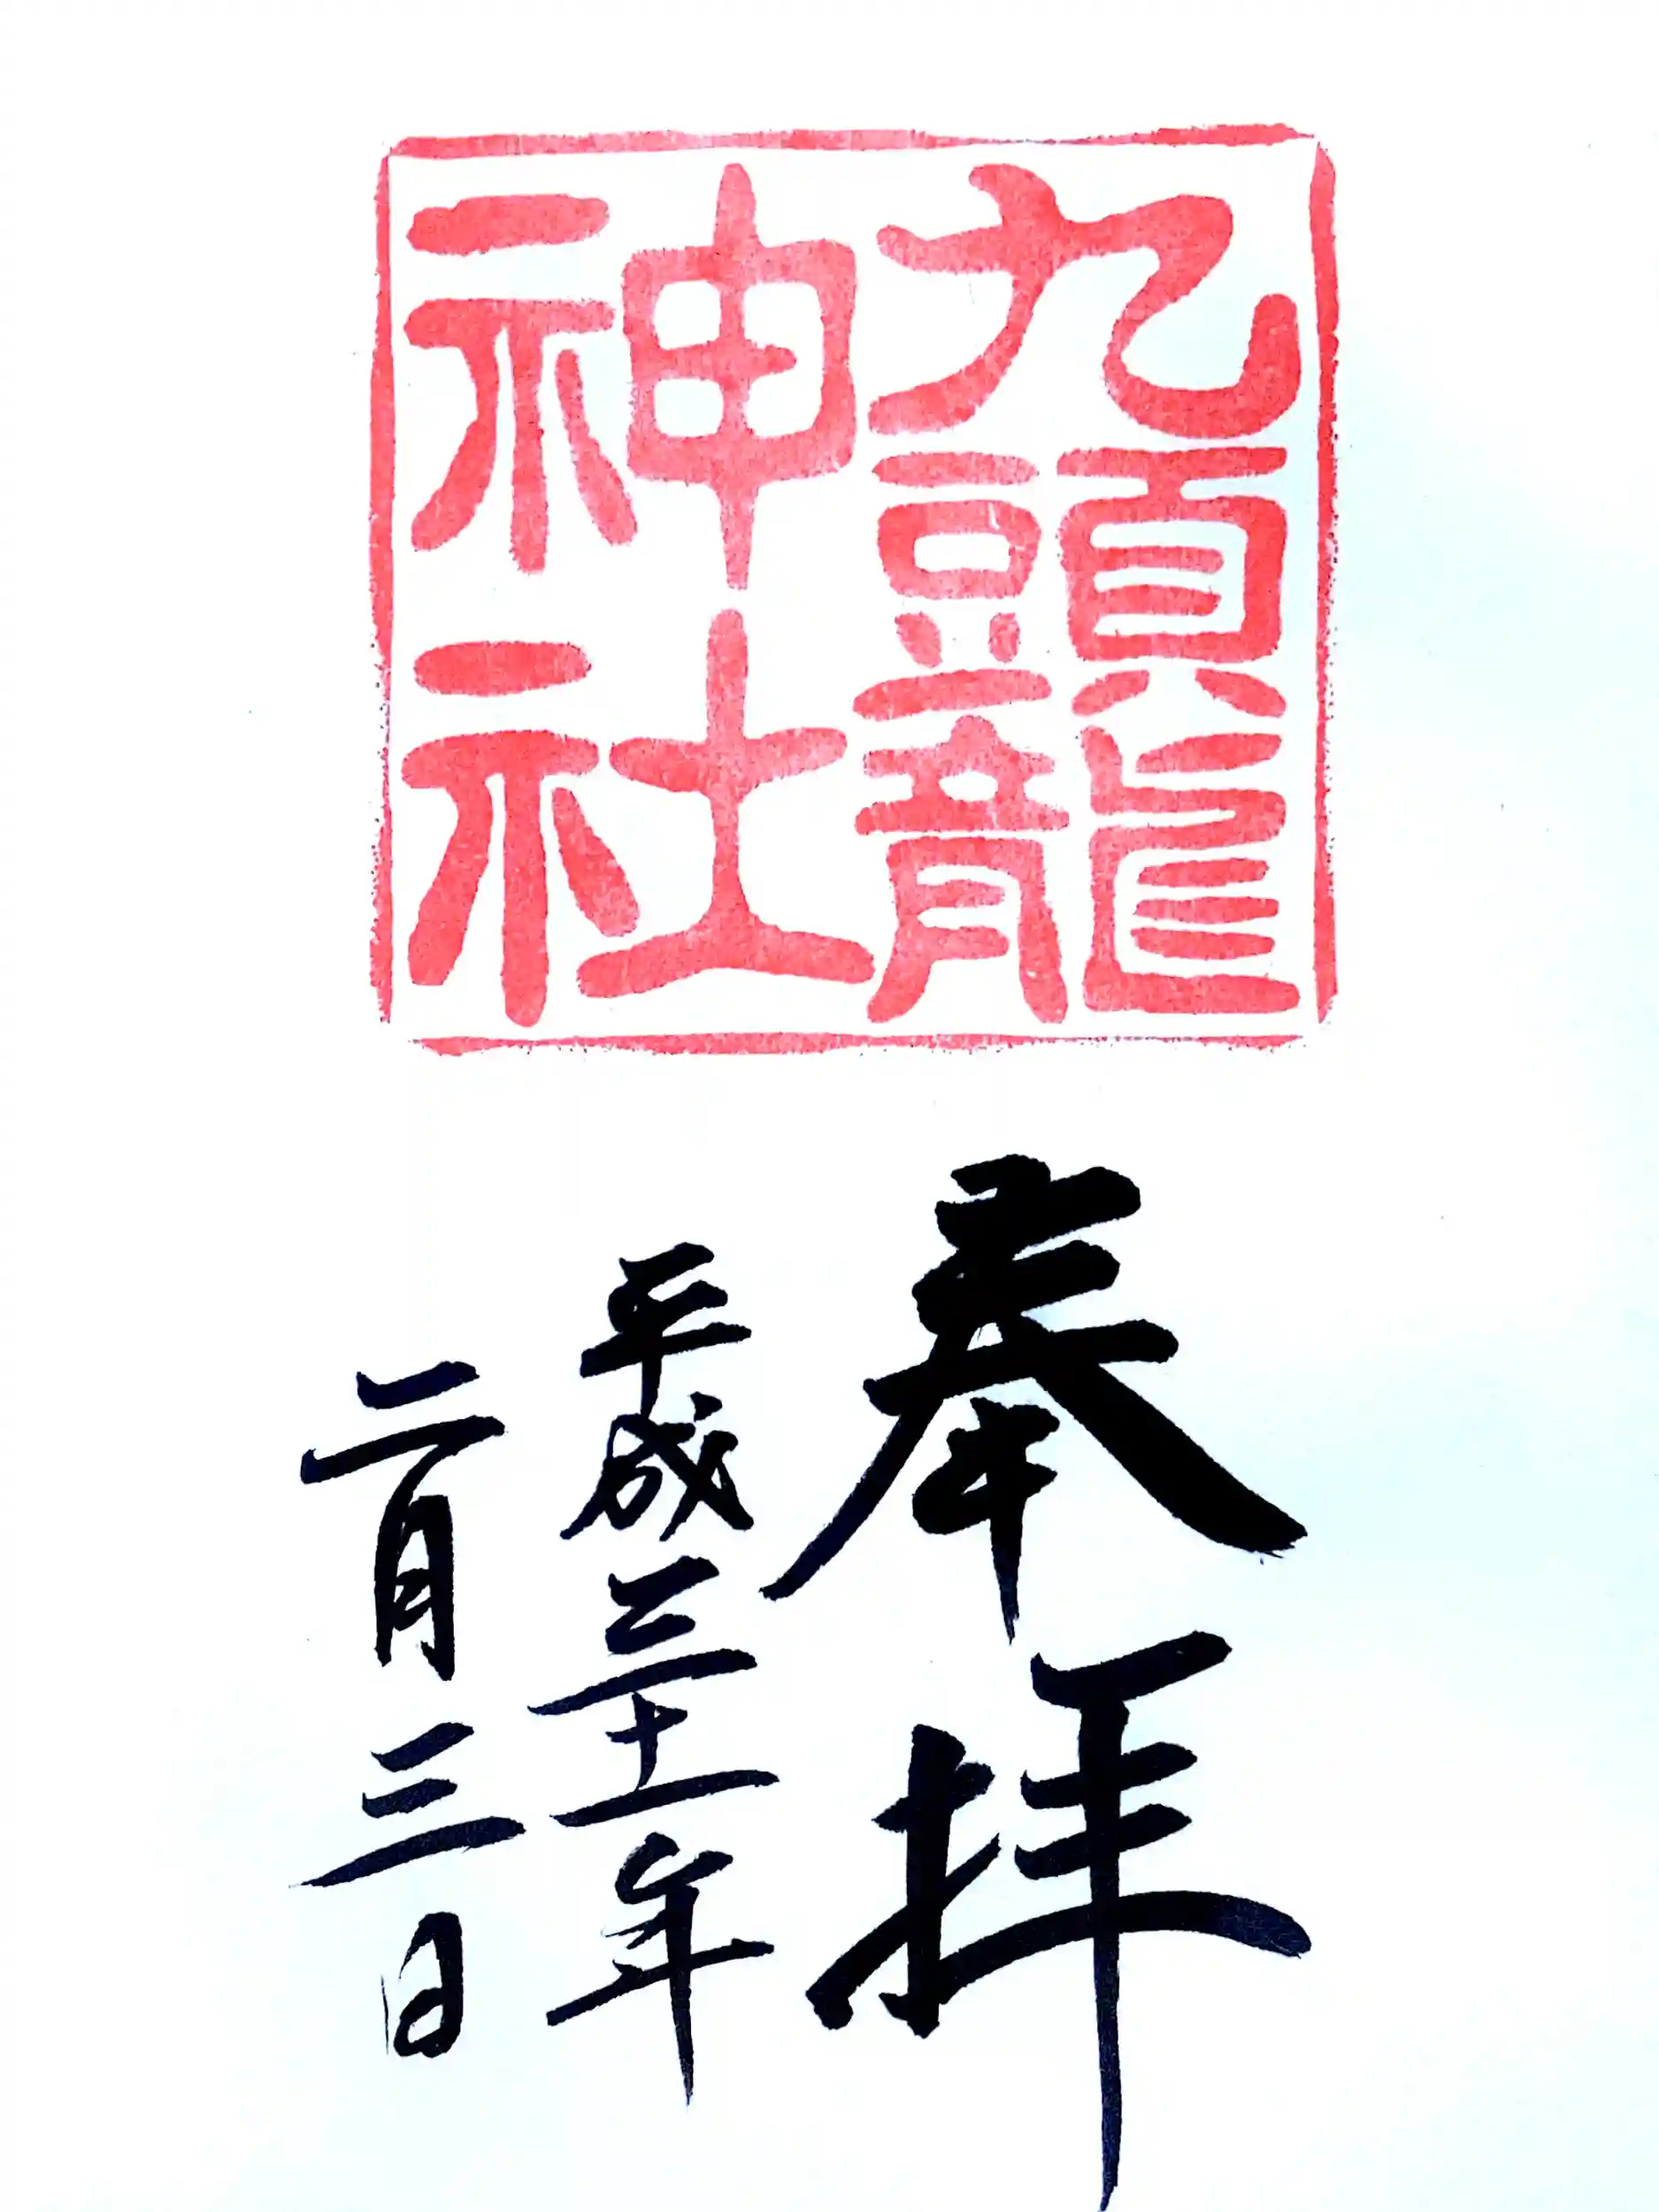 九頭龍
神社
奉拝
平成三十一年
二月三日